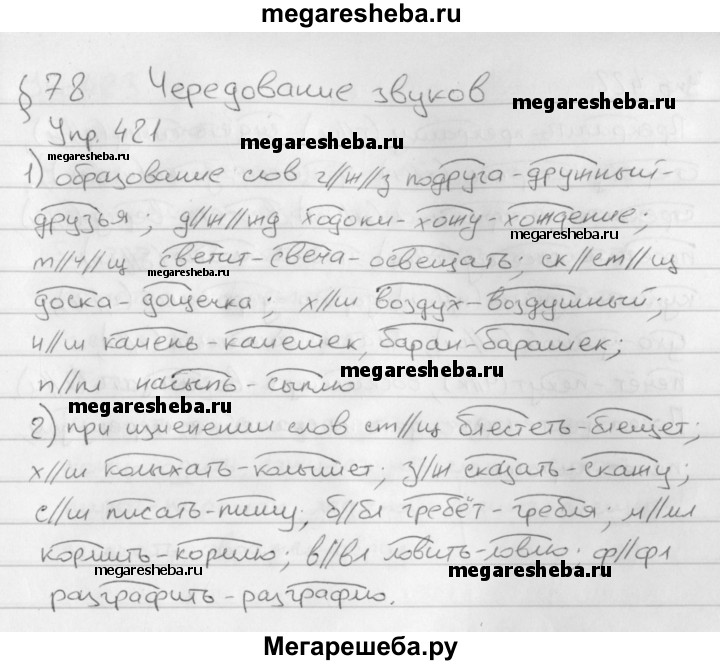 megaresheba.ru
§ 78 Чередование звуков
megaresheba.ru
Упр. 421
megaresheba.ru
megaresheba.ru
1) образование слов г//ж//з подруга-дружный-
друзья; д//ж//жд ходоки-хожу-хождение;
megaresheba.ru
т//ч//щ светит-свеча-освещать; ск//ст//щ
megaresheba.ru
доска-дощечка; х//ш воздух-воздушный;
н//ш камень-камешек, баран-барашек;
megaresheba.ru
п//пл насыпь-сыплю
megaresheba.ru
2) при изменении слов ст//щ блестеть-блещет;
х//ш колыхать-колышет; з//ж сказать-скажу;
с//ш писать-пишу, б//бл гребёт-гребля; м//мл
кормить-кормлю; в//вл ловить-ловлю; ф//фл
megaresheba.ru
megaresheba.ru
разграфить-разграфлю.
Мегарешеба.ру